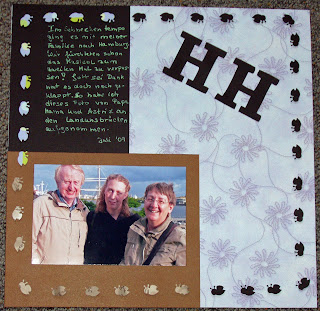 Im Schneckentempo
ging es mit meiner
Familie nach Hamburg.
Wir fürchteten schon
das Musical zum
zweiten Mal zu verpas-
sen! Gott sei Dank
hat es doch noch ge-
klappt. So habe ich
dieses Foto von Papa,
Mama und Astrid an
den Landungsbrücken
aufgenommen.
Juli '09
HH